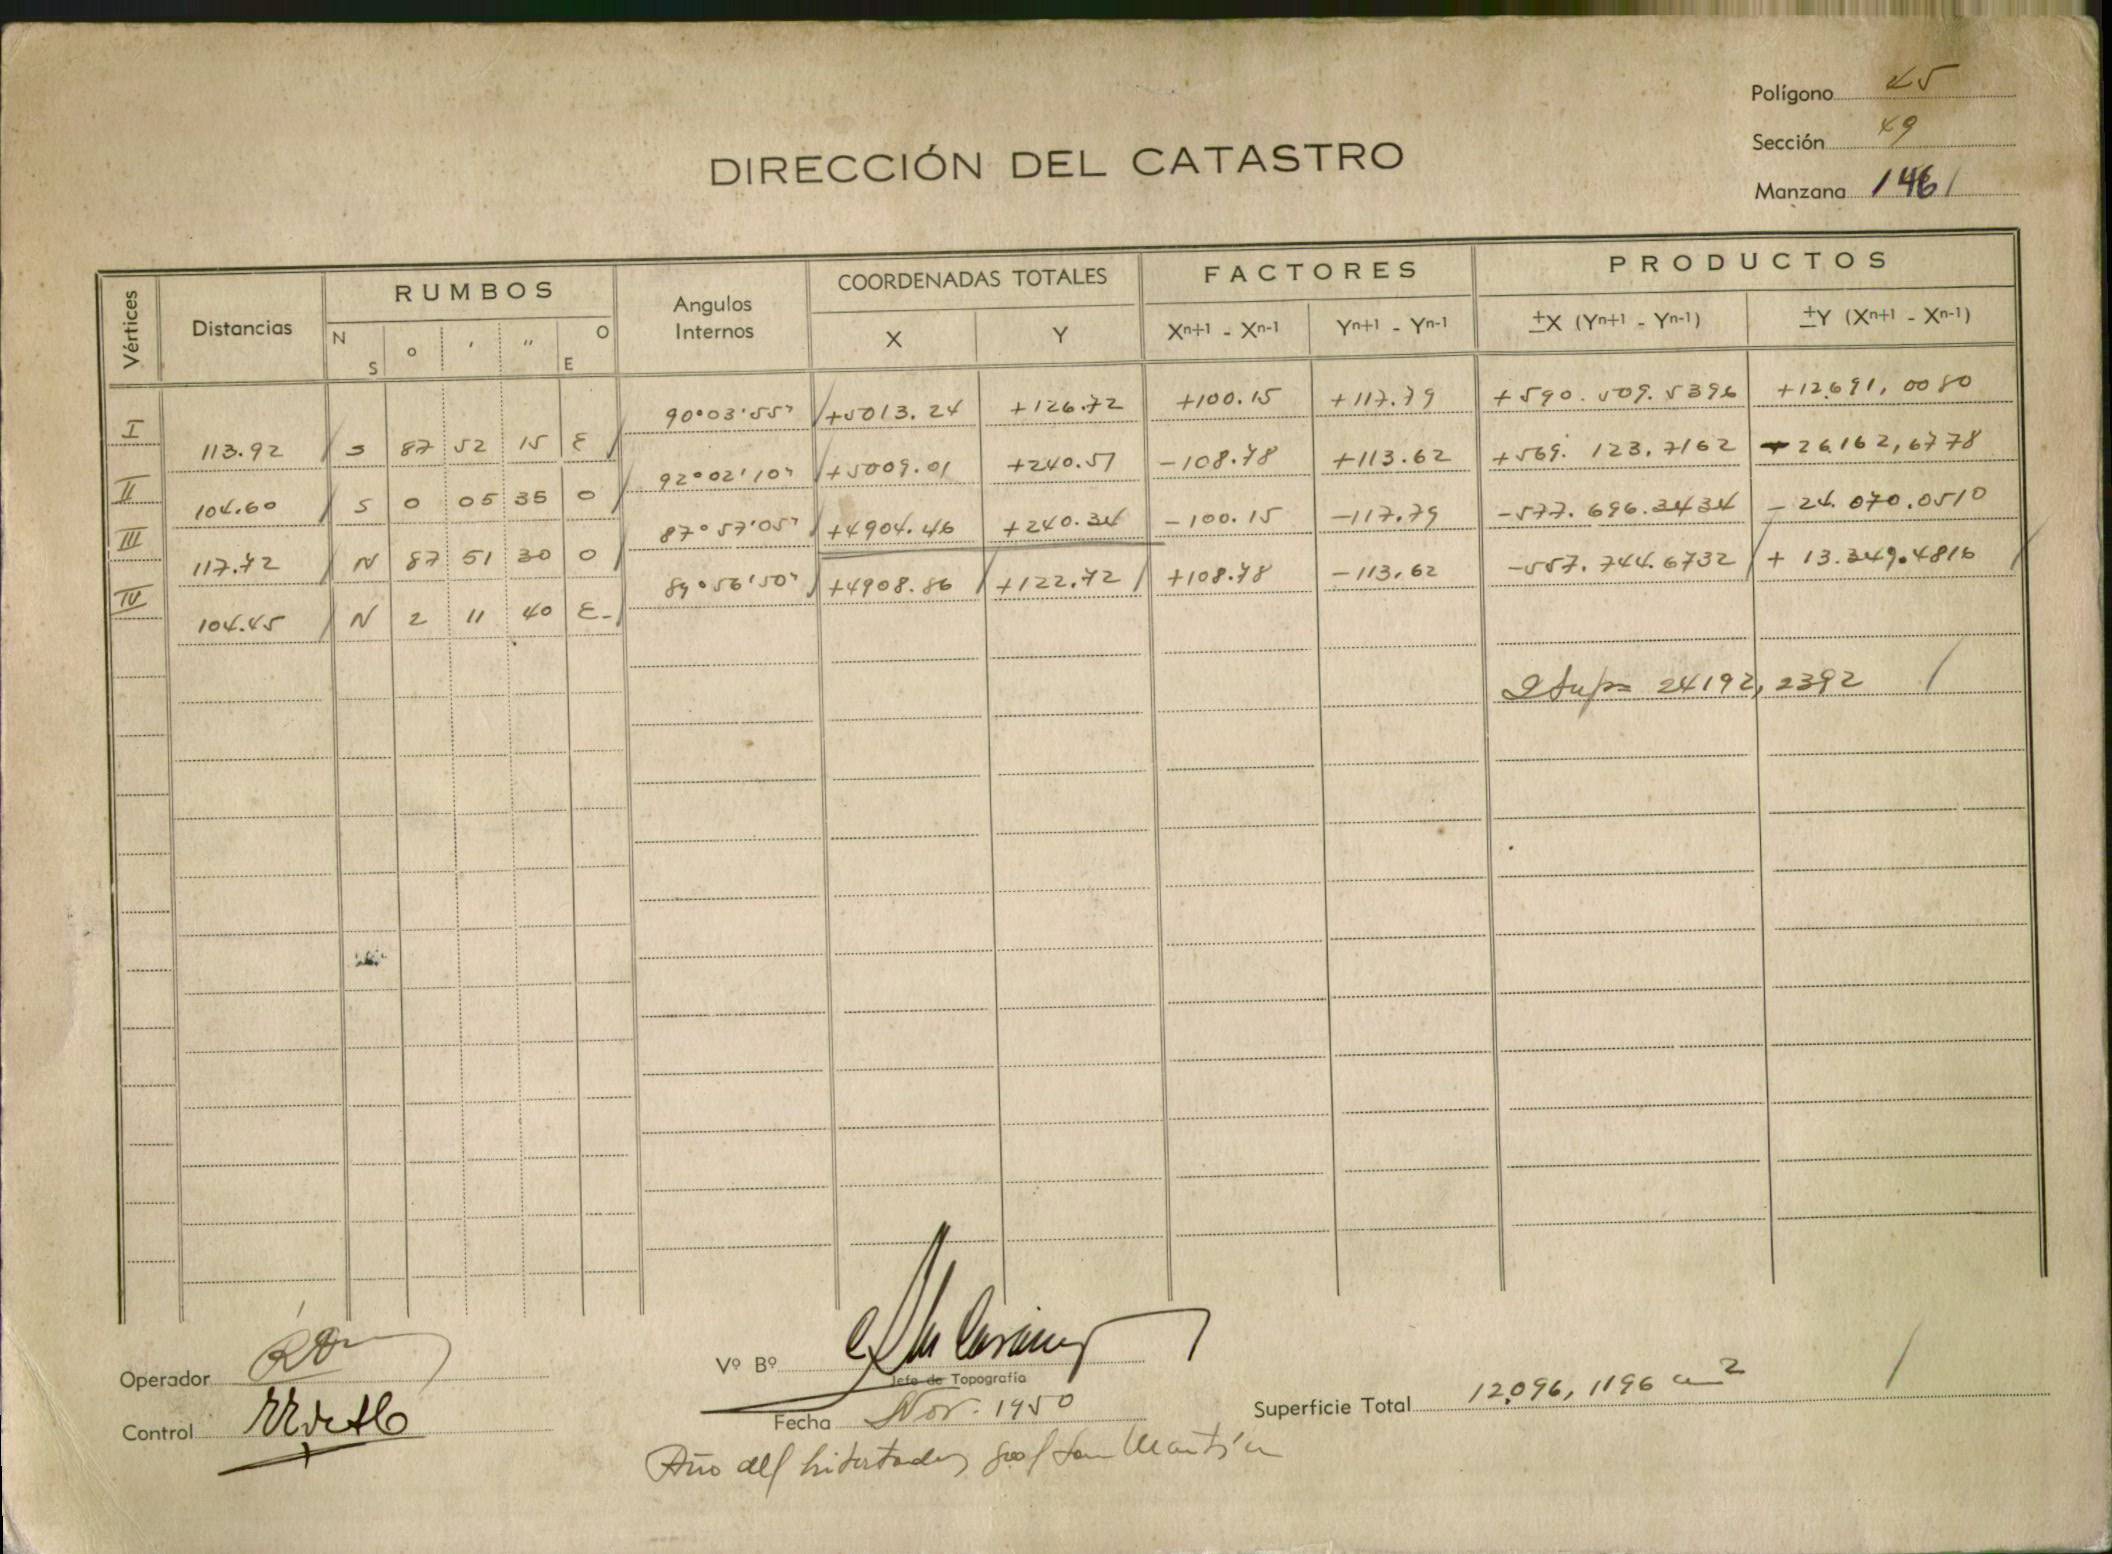 Polígono 45
Sección 49
Manzana 1461
DIRECCIÓN DEL CATASTRO
Vértices Distancias RUMBOS Angulos Internos COORDENADAS TOTALES FACTORES PRODUCTOS
N S o ' " E O X Y Xn+1 - Xn-1 Yn+1 - Yn-1 ±X (Yn+1 - Yn-1) ±Y (Xn+1 - Xn-1)
I 90°03'55" +5013.24 +126.72 +100.15 +117.79 +590.509.5396 +12.691,0080
113.92 S 87 52 15 E
II 92°02'10" +5009.01 +240.51 -108.78 +113.62 +569.123.7162 +26.162,6778
104.60 S 0 05 35 O
III 87°57'05" +4904.46 +240.34 -100.15 -117.79 -577.696.3434 -24.070.0510
117.72 N 87 51 30 O
IV 89°56'50" +4908.86 +122.72 +108.78 -113.62 -557.744.6732 +13.349.4816
104.45 N 2 11 40 E
2 Sup= 24192,2392
Operador
Vº Bº
Jefe de Topografía
Control
Fecha Nov. 1950
Superficie Total 12.096,1196 m2
Año del Libertador Gral San Martín